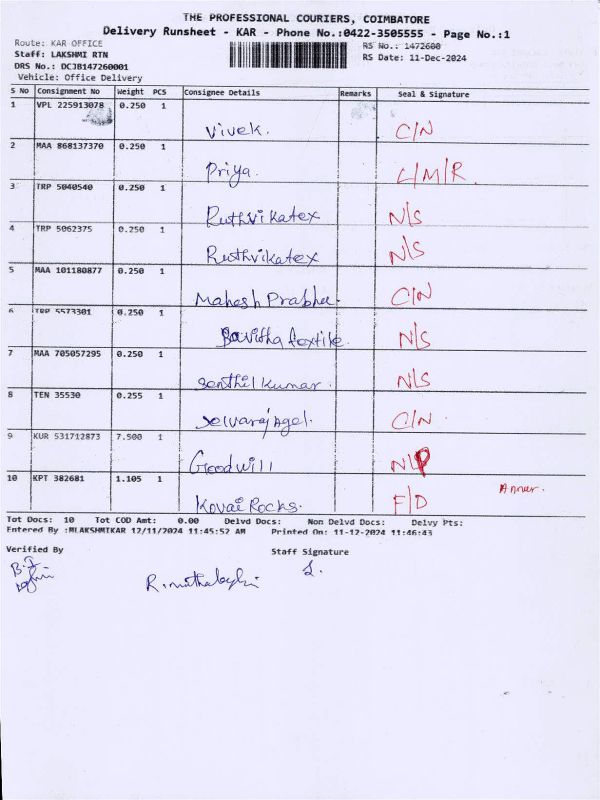 THE PROFESSIONAL COURIERS, COIMBATORE
Delivery Runsheet - KAR - Phone No.:0422-3505555 - Page No.:1
Route: KAR OFFICE RS No.: 1472600
Staff: LAKSHMI RTN RS Date: 11-Dec-2024
DRS No.: DCJB147260001
Vehicle: Office Delivery
S No Consignment No Weight PCS Consignee Details Remarks Seal & Signature
1 VPL 225913078 0.250 1 Vivek. C/N
2 MAA 868137370 0.250 1 Priya. L/M/R.
3 TRP 5040540 0.250 1 Ruthvikatex N/S
4 TRP 5062375 0.250 1 Ruthvikatex N/S
5 MAA 101180877 0.250 1 Mahesh Prabhu. C/N
6 TRP 5573301 0.250 1 Savitha textile. N/S
7 MAA 705057295 0.250 1 Senthil kumar. N/S
8 TEN 35530 0.255 1 Selvaraj Agel. C/N.
9 KUR 531712873 7.500 1 Goodwill
10 KPT 382681 1.105 1 Kovai Rocks. F/D
Tot Docs: 10 Tot COD Amt: 0.00 Delvd Docs: Non Delvd Docs: Delvy Pts:
Entered By :MLAKSHMIKAR 12/11/2024 11:45:52 AM Printed On: 11-12-2024 11:46:43
Verified By Staff Signature